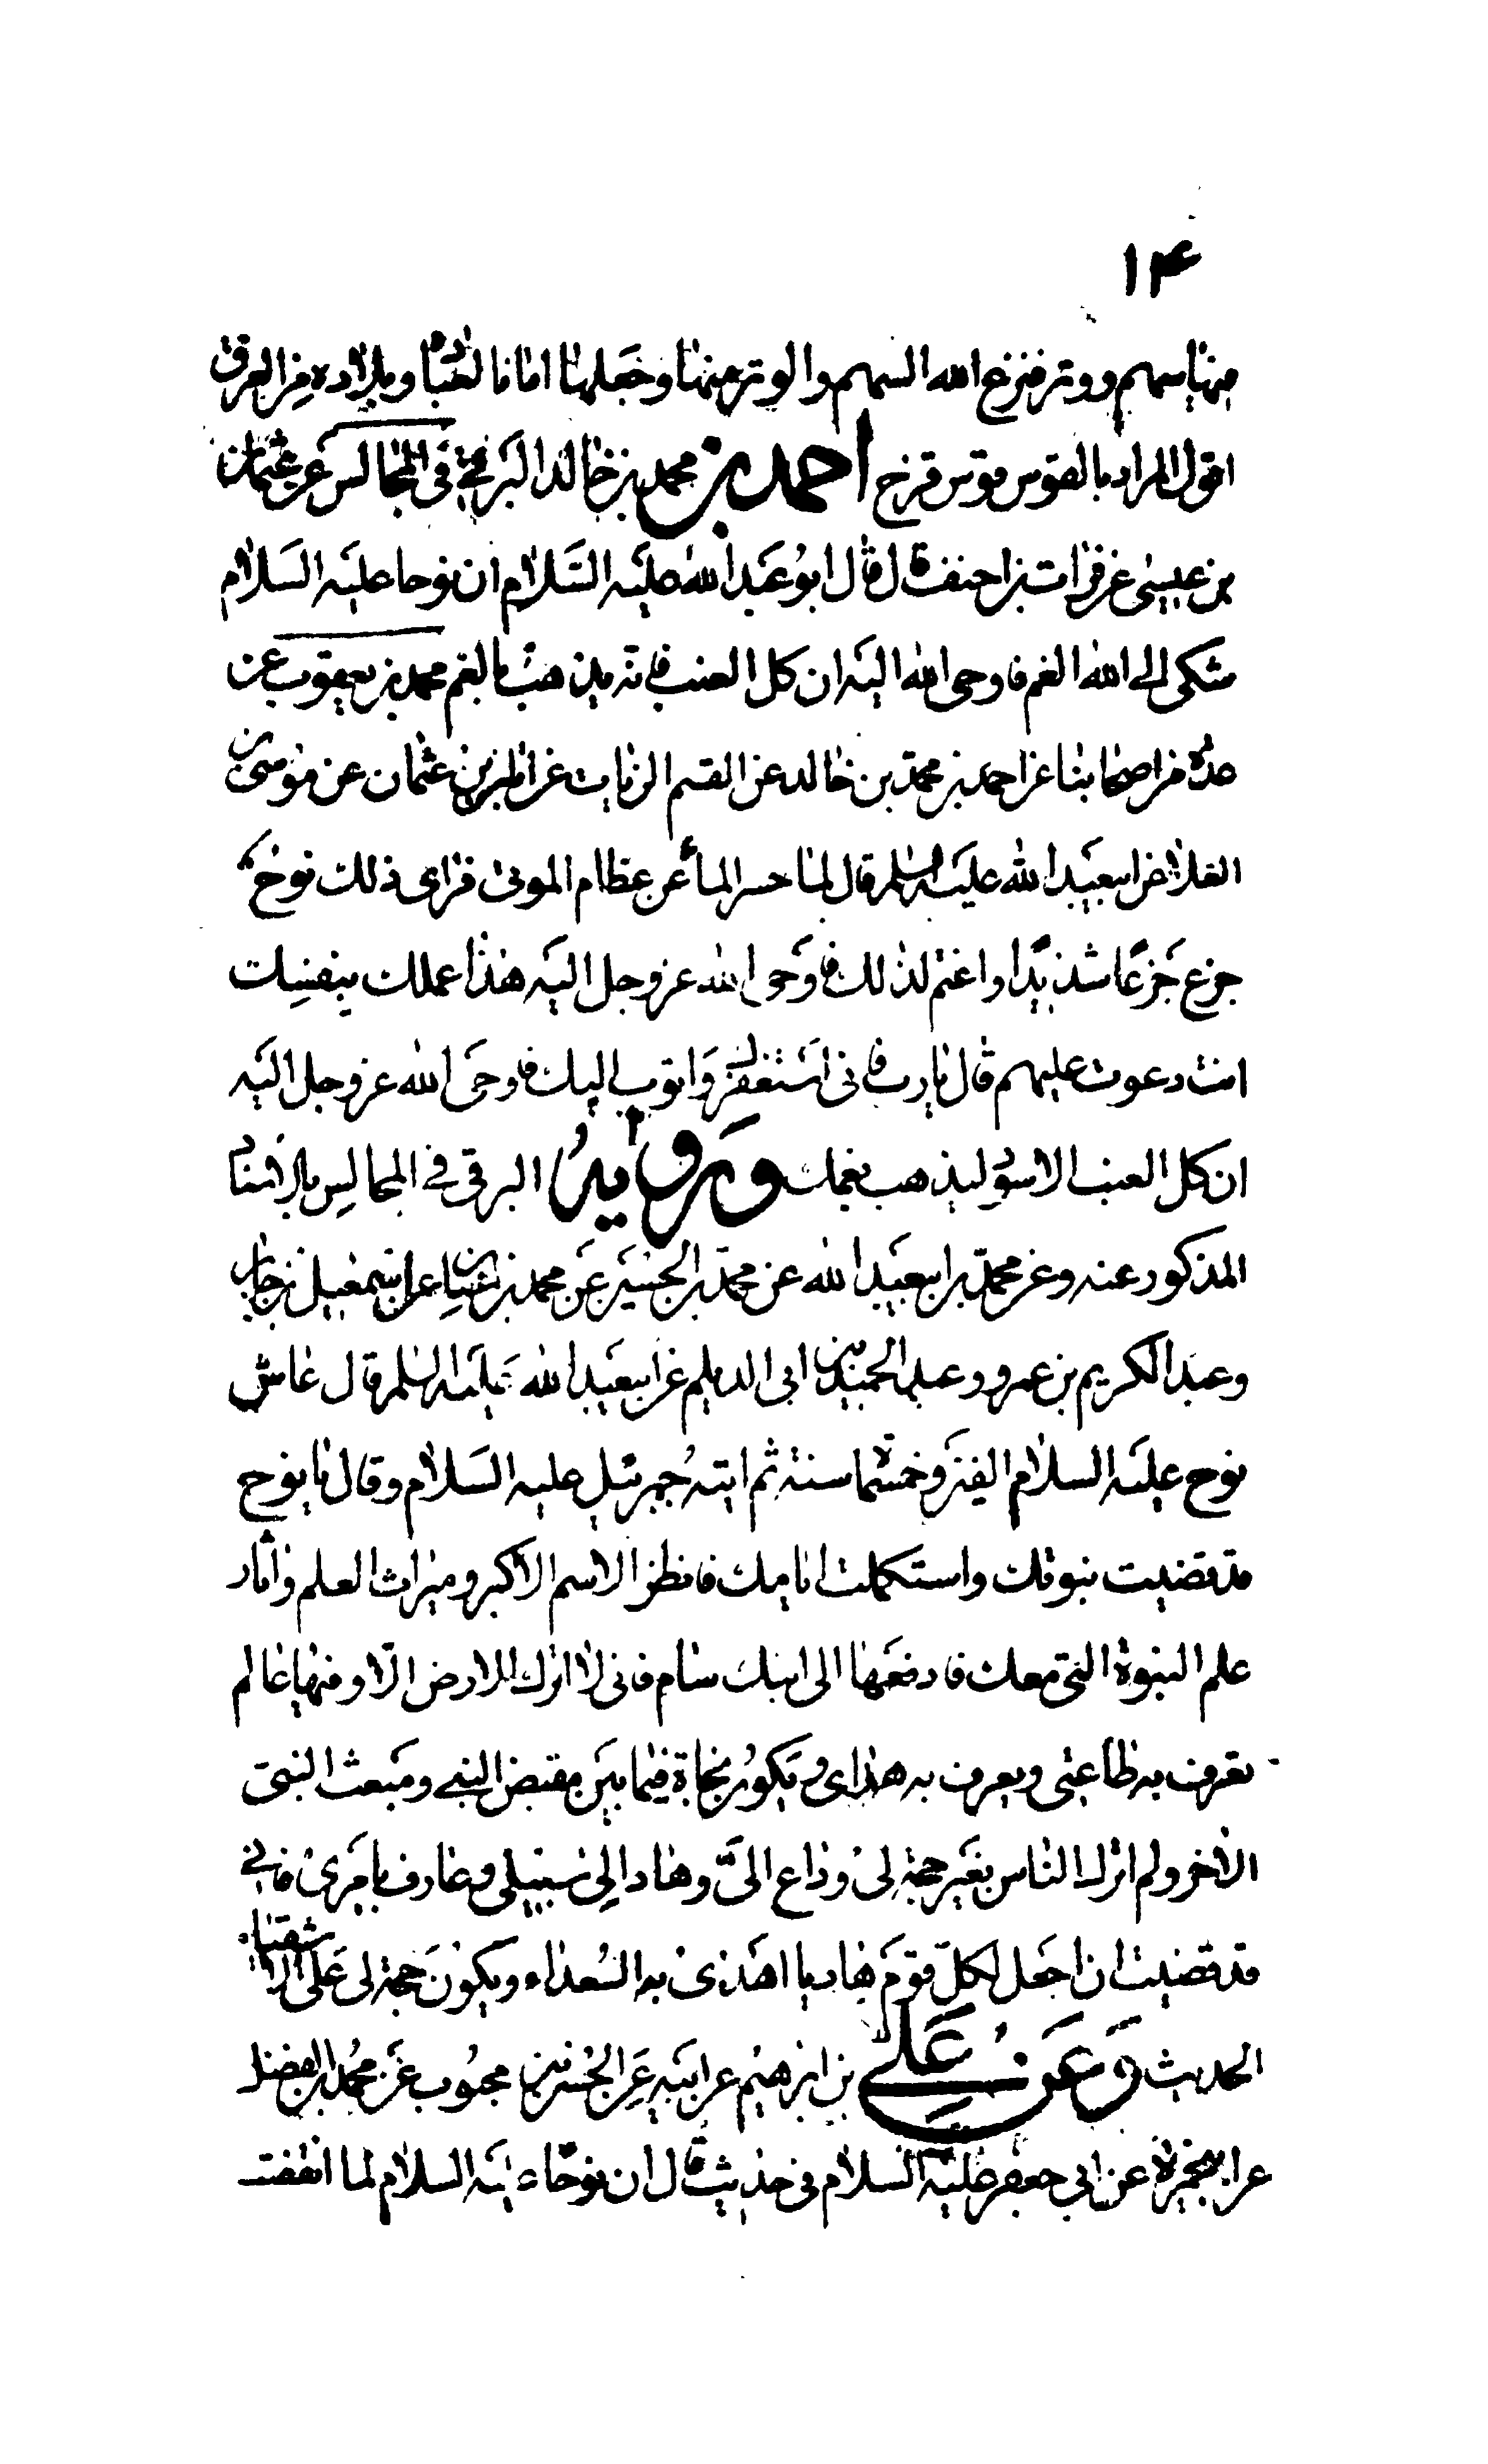 ۱۴
فيها سهم ووتر فنزع الله السهم والوتر منها وجعلها امانا لعباده وبلاده من الغرق
اقول المراد بالقوس قوس قزح احمد بن محمد بن خالد البرقي في المجالس عن عثمان
بن عيسى عن فرات بن احنف قال قال ابو عبد الله عليه السلام ان نوحا عليه السلام
شكى الى الله الغم فاوحى الله اليه ان كل العنب فانه يذهب بالغم محمد بن يعقوب عن
عدة من اصحابنا عن احمد بن محمد بن خالد عن القسم الزيات عن ابان بن عثمان عن موسى بن
العلاء عن ابيعبد الله عليه السلم قال لما حسر الماء عن عظام الموتى فراى ذلك نوح ع
جزع جزعا شديدا واغتم لذلك فاوحى الله عز وجل اليه هذا عملك بنفسك
انت دعوت عليهم قال يا رب فاني استغفرك واتوب اليك فاوحى الله عز وجل اليه
ان كل العنب الاسود ليذهب بغمك ورواه البرقي في المجالس بالاسناد
المذكور عنه وعن محمد بن ابيعبد الله عن محمد بن الحسين عن محمد بن سنان عن اسمعيل بن جابر
وعبد الكريم بن عمرو وعبد الحميد بن ابي الديلم عن ابيعبد الله عليه السلم قال عاش
نوح عليه السلام الفين وخمسمائة سنة ثم اتيه جبرئيل عليه السلام وقال يا نوح
قد قضيت نبوتك واستكملت ايامك فانظر الاسم الاكبر وميراث العلم واثار
علم النبوة التي معك فادفعها الى ابنك سام فاني لا اترك الارض الا وفيها عالم
تعرف به طاعتي ويعرف به هداي ويكون نجاة فيما بين مقبض النبي ومبعث النبي
الاخر ولم اترك الناس بغير حجة لي وداع الي وهاد الى سبيلي وعارف بامري فاني
قد قضيت ان اجعل لكل قوم هاديا اهدي به السعداء ويكون حجة لي على الاشقياء
الحديث وعن علي بن ابرهيم عن ابيه عن الحسن بن محبوب عن محمد بن الفضيل
عن ابيحمزة عن ابي جعفر عليه السلام في حديث قال ان نوحا عليه السلام لما انقضت